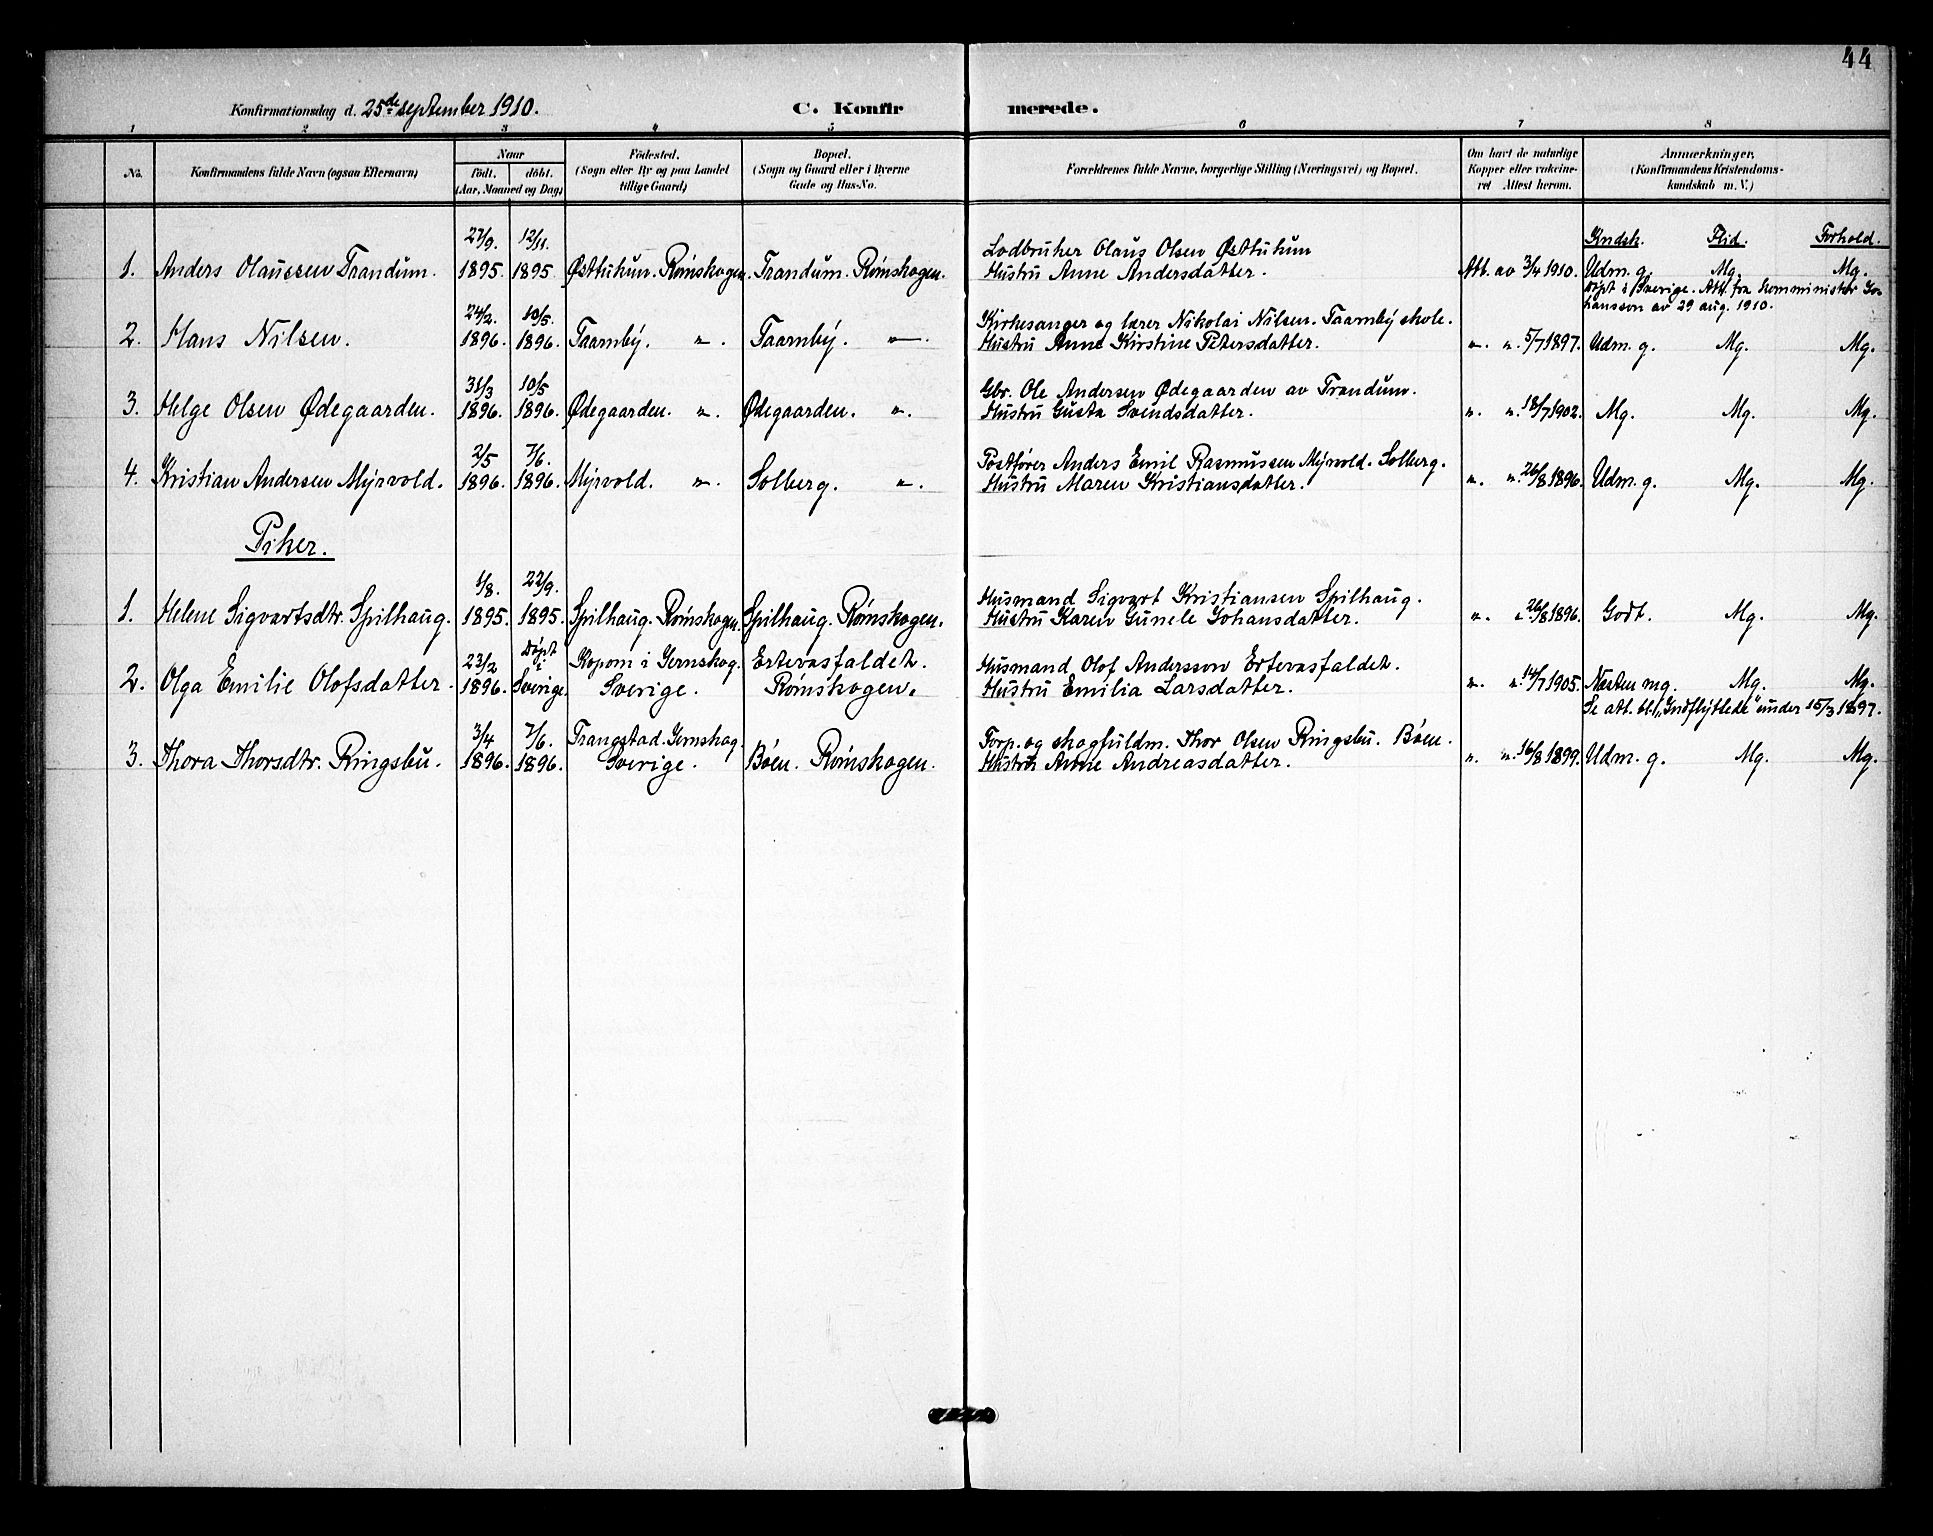 44
Konfirmationsdag d. 25de september 1910. C. Konfir merede.
1 2 3 4 5 6 7 8
No. Konfirmandens fulde Navn (ogsaa Efternavn) Naar Födested. Bopæl. Forældrenes fulde Navne, borgerlige Stilling (Næringsvei) og Bopæl. Om havt de naturlige Anmærkninger,
födt. döbt. (Sogn eller By og paa Landet (Sogn og Gaard eller i Byerne Kopper eller vakcine- (Konfirmandens Kristendoms-
(Aar, Maaned og Dag) tillige Gaard) Gade og Hus-No. ret Attest herom. kundskab m. V.)
27/9. 12/11. Kndsk. Flid. Forhold.
Lodbruker Olaus Olsen Østtukun
1. Anders Olaussen Trandum. 1895. 1895. Østtukun. Rømskogen. Trandum. Rømskogen. Hustru Anne Andersdatter. Att. av 3/4 1910. Udm. g. Mg. Mg.
Døpt i Sverige. Att. fra komminister Jo-
24/2. 10/5. hansson av 29 aug. 1910.
Kirkesanger og lærer Nikolai Nilsen. Taarnby skole.
2. Hans Nilsen. 1896. 1896. Taarnby. " . Taarnby. " . Hustru Anne Kirstine Petersdatter. " . " . 5/7 1897. Udm. g. Mg. Mg.
31/3 10/5
Gbr. Ole Andersen Ødegaarden av Trandum.
3. Helge Olsen Ødegaarden. 1896. 1896. Ødegaarden. " . Ødegaarden. " . Hustru Gusta Svendsdatter. " . " . 18/7 1902. Mg. Mg. Mg.
2/5 7/6.
Postfører Anders Emil Rasmussen Myrvold. Solberg.
4. Kristian Andersen Myrvold. 1896. 1896. Myrvold. " . Solberg. " . Hustru Maren Kristiansdatter. " . " . 26/8 1896. Udm. g. Mg. Mg.
Piker.
1/8. 22/9.
Husmand Sigvart Kristiansen Spilhaug.
1. Helene Sigvartsdtr. Spilhaug. 1895. 1895. Spilhaug. Rømskogen. Spilhaug. Rømskogen. Hustru Karen Gunele Johansdatter. " . " . 26/8 1896. Godt. Mg. Mg.
23/2 Døpt i Kopom i Jernskog. Ertevasfaldet. Husmand Olof Andersson Ertevasfaldet.
2. Olga Emilie Olofsdatter. 1896. Sverige. Sverige. Rømskogen. Hustru Emilia Larsdatter. " . " . 14/7 1905. Næsten mg. Mg. Mg.
Se att. bl. "Indflyttede" under 15/3 1897.
3/4 7/6. Trangstad. Jernskog. Torp. og skogfuldm. Thor Olsen Ringsbu. Bøen.
3. Thora Thorsdtr. Ringsbu. 1896. 1896. Sverige. Bøen. Rømskogen. Hustru Anne Andreasdatter. " . " . 16/8 1899. Udm. g. Mg. Mg.